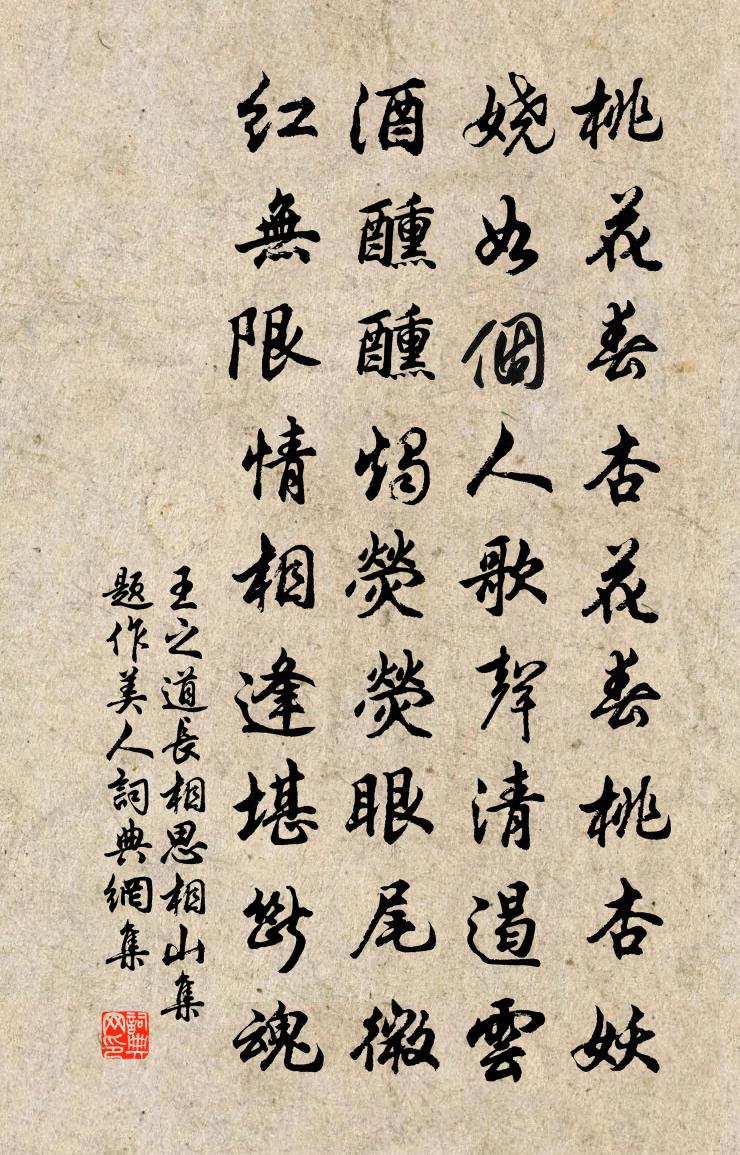 桃花春杏花春桃杏妖
嬈如個人歌聲清遏雲
酒醺醺燭熒熒眼尾微
紅無限情相逢堪斷魂
王之道長相思相山集
題作美人詞典網集
詞典网印